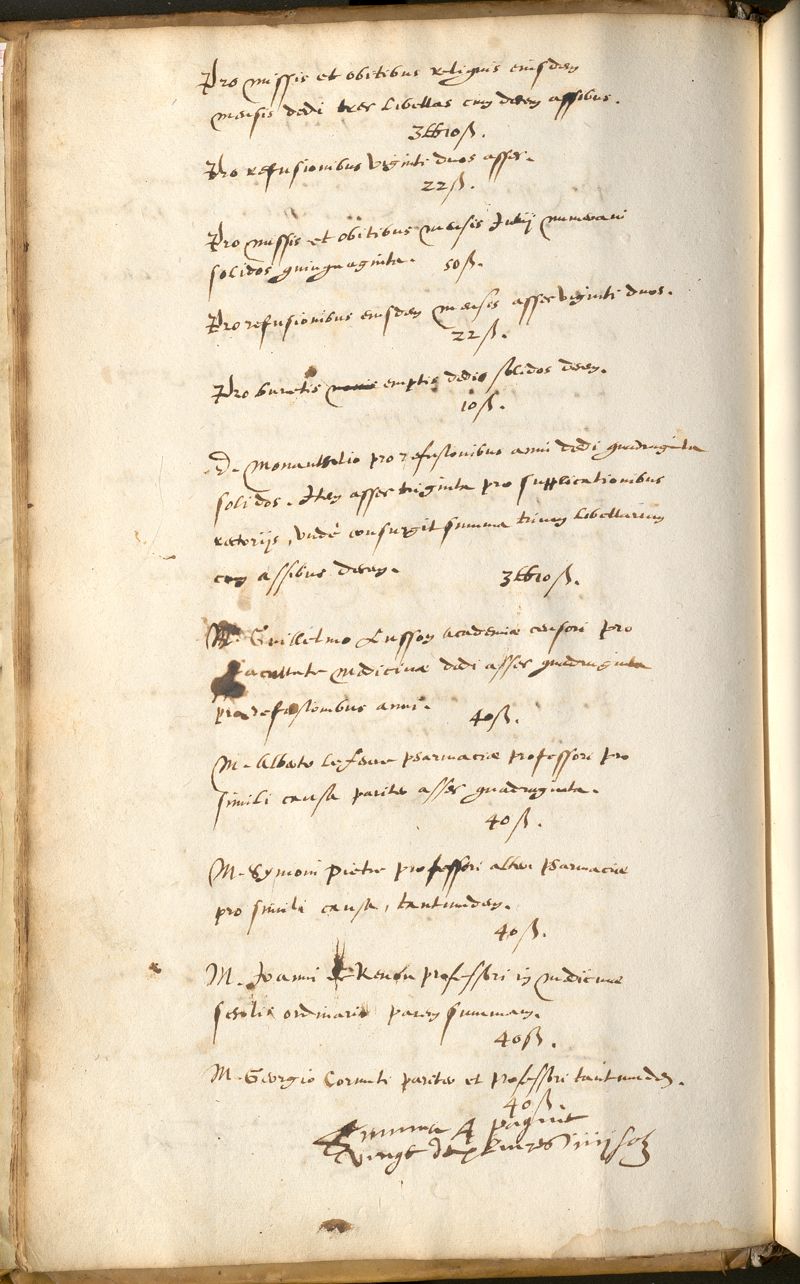 Pro missis et obitibus reliquis eiusdem
mensis dedi tres libellas cum decem assibus.
3 lb 10 ß.
Pro refusionibus viginti duos asses.
22 ß.
Pro missis et obitibus mensis Julij numeravi
solidos quinquaginta. 50 ß.
Pro refusionibus eiusdem mensis asses viginti duos.
22 ß.
Pro buretis emptis dedi solidos decem.
10 ß.
D. Monantholio pro refusionibus anni dedi quadraginta
solidos. Item asses triginta pro supplicationibus
rectorijs, unde consurgit summa trium libellarum
cum assibus decem. 3 lb 10 ß.
M. Guillelmo Lusson Academiæ censori pro
facultate medicinæ dedi asses quadraginta
pro refusionibus anni. 40 ß.
M. Alberto Lefevre pharmaciæ professori pro
simili causa pariter asses quadraginta.
40 ß.
M. Symoni Pietre professori alteri pharmaciæ
pro simili causa, tantumdem.
40 ß.
M. Joanni professori in medicinæ
scholis ordinario parem summam.
40 ß.
M. Georgio Cornuti pariter et professori tantumdem.
40 ß.
Summa 4 paginæ
vingt livres iiij solz